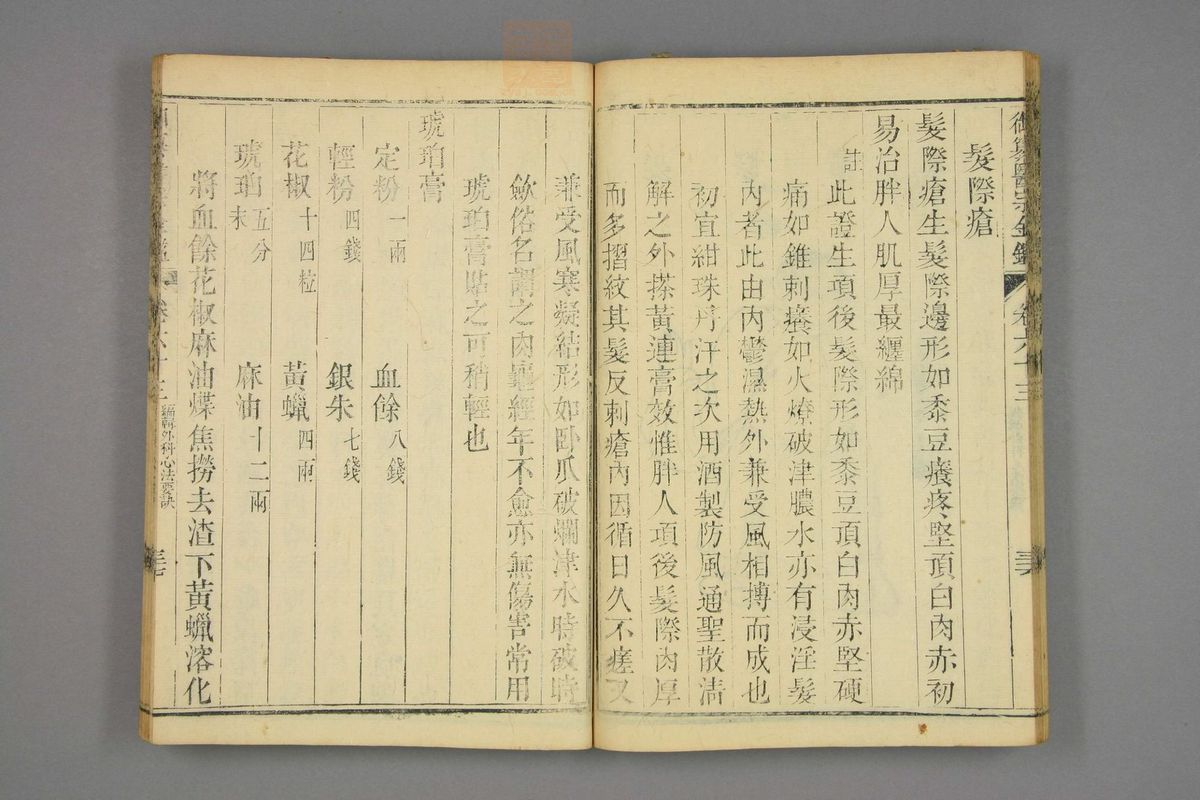 御纂醫宗金鑑 卷六十三
髮際瘡
髮際瘡生髮際邊形如黍豆癢疼堅頂白肉赤初
易治胖人肌厚最纏綿
註此證生項後髮際形如黍豆頂白肉赤堅硬
痛如錐刺癢如火燎破津膿水亦有浸淫髮
內者此由內鬱濕熱外兼受風相搏而成也
初宜紺珠丹汗之次用酒製防風通聖散清
解之外搽黃連膏效惟胖人項後髮際肉厚
而多摺紋其髮反刺瘡內因循日久不瘥又
兼受風寒凝結形如卧爪破爛津水時破時
斂俗名謂之肉龜經年不愈亦無傷害常用
琥珀膏貼之可稍輕也
琥珀膏
定粉一兩 血餘八錢
輕粉四錢 銀朱七錢
花椒十四粒 黃蠟四兩
琥珀五分末 麻油十二兩
將血餘花椒麻油煠焦撈去渣下黃蠟溶化
編輯外科心法要訣